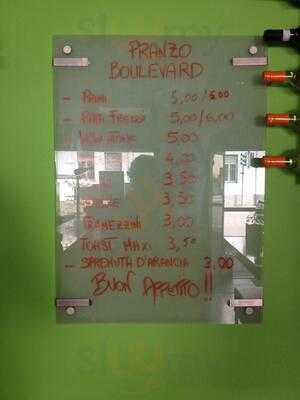 PRANZO
BOULEVARD
- PRIMI 5,00/6,00
- PIATTI FREDDI 5,00/6,00
5,00
4,00
3,50
3,50
TRAMEZZINI 3,00
TOAST MAXI 3,50
- SPREMUTA D'ARANCIA 3,00
BUON APPETITO!!